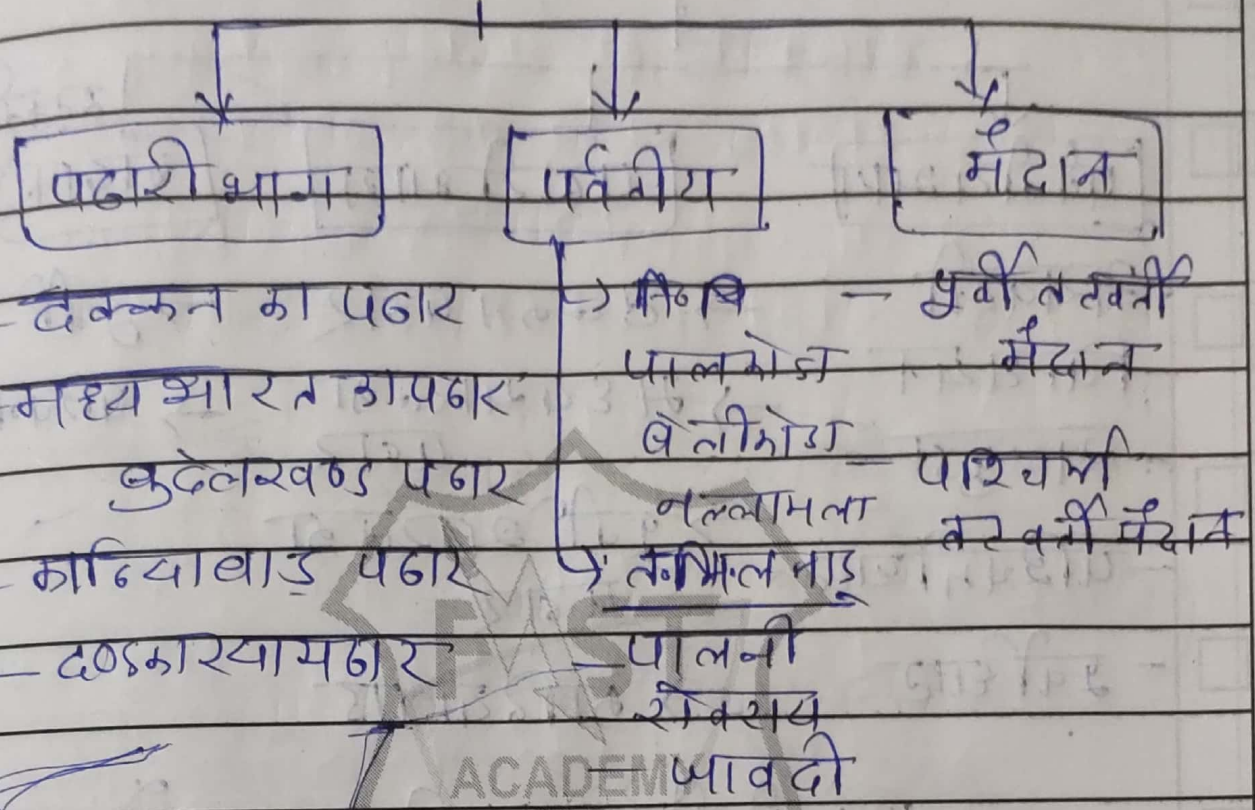 पठारी भाग
पर्वतीय
मैदान
दक्कन का पठार
मध्य भारत का पठार
बुदेलखण्ड पठार
काठियावाड़ पठार
- दण्डकारण्य पठार
पालकोंडा
वेलीकोंडा
नल्लामला
तमिलनाडू
- पालनी
शेवराय
- जावदी
- पूर्वी तटवर्ती
मैदान
- पश्चिमी
तटवर्ती मैदान
ACADEMY